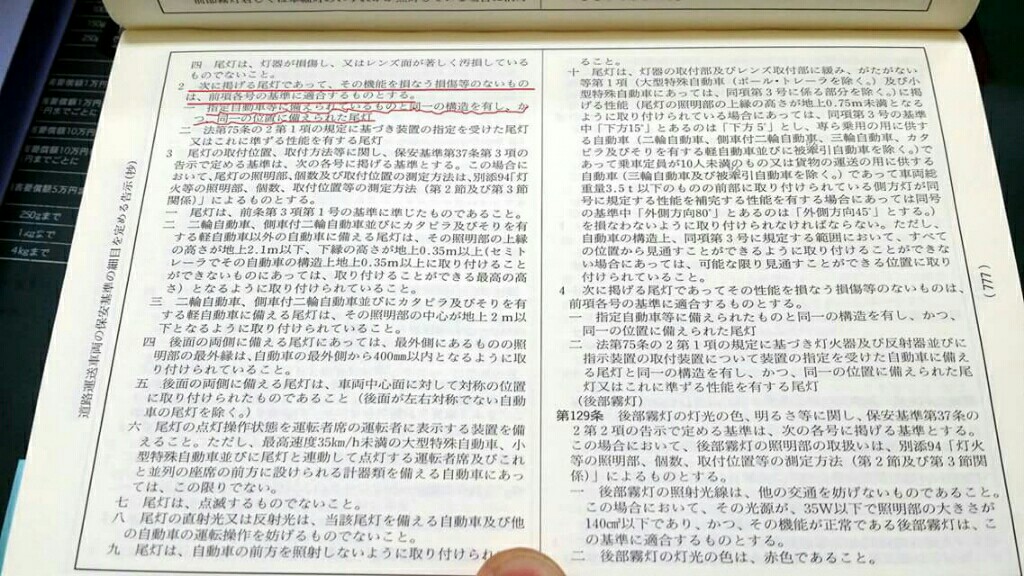 四 尾灯は、灯器が損傷し、又はレンズ面が著しく汚損している
ものでないこと。
2 次に掲げる尾灯であって、その機能を損なう損傷等のないもの
は、前項各号の基準に適合するものとする。
一 指定自動車等に備えられているものと同一の構造を有し、か
つ、同一の位置に備えられた尾灯
二 法第75条の2第1項の規定に基づき装置の指定を受けた尾灯
又はこれに準ずる性能を有する尾灯
3 尾灯の取付位置、取付方法等に関し、保安基準第37条第3項の
告示で定める基準は、次の各号に掲げる基準とする。この場合に
おいて、尾灯の照明部、個数及び取付位置の測定方法は、別添94「灯
火等の照明部、個数、取付位置等の測定方法（第2節及び第3節
関係）」によるものとする。
一 尾灯は、前条第3項第1号の基準に準じたものであること。
二 二輪自動車、側車付二輪自動車並びにカタピラ及びそりを有
する軽自動車以外の自動車に備える尾灯は、その照明部の上縁
の高さが地上2.1m以下、下縁の高さが地上0.35m以上(セミト
レーラでその自動車の構造上地上0.35m以上に取り付けること
ができないものにあっては、取り付けることができる最高の高
さ）となるように取り付けられていること。
三 二輪自動車、側車付二輪自動車並びにカタピラ及びそりを有
する軽自動車に備える尾灯は、その照明部の中心が地上2m以
下となるように取り付けられていること。
四 後面の両側に備える尾灯にあっては、最外側にあるものの照
明部の最外縁は、自動車の最外側から400mm以内となるように取
り付けられていること。
五 後面の両側に備える尾灯は、車両中心面に対して対称の位置
に取り付けられたものであること（後面が左右対称でない自動
車の尾灯を除く。）
六 尾灯の点灯操作状態を運転者席の運転者に表示する装置を備
えること。ただし、最高速度35km/h未満の大型特殊自動車、小
型特殊自動車並びに尾灯と連動して点灯する運転者席及びこれ
と並列の座席の前方に設けられる計器類を備える自動車にあっ
ては、この限りでない。
七 尾灯は、点滅するものでないこと。
八 尾灯の直射光又は反射光は、当該尾灯を備える自動車及び他
の自動車の運転操作を妨げるものでないこと。
九 尾灯は、自動車の前方を照射しないように取り付けられ
十 尾灯は、灯器の取付部及びレンズ取付部に緩み、がたがない
等第1項（大型特殊自動車（ポール・トレーラを除く。）及び小
型特殊自動車にあっては、同項第3号に係る部分を除く。）に掲
げる性能（尾灯の照明部の上縁の高さが地上0.75m未満となる
ように取り付けられている場合にあっては、同項第3号の基準中
「下方15°」とあるのは「下方5°」とし、専ら乗用の用に供する
自動車（二輪自動車、側車付二輪自動車、三輪自動車、カタピ
ラ及びそりを有する軽自動車並びに被牽引自動車を除く。）で
あって乗車定員が10人未満のもの又は貨物の運送の用に供する
自動車（三輪自動車及び被牽引自動車を除く。）であって車両総
重量3.5t以下のものの前部に取り付けられている側方灯が同
号に規定する性能を補完する性能を有する場合にあっては同号
の基準中「外側方向80°」とあるのは「外側方向45°」とする。）
を損なわないように取り付けられなければならない。ただし、
自動車の構造上、同項第3号に規定する範囲において、すべて
の位置から見通すことができるように取り付けることができな
い場合にあっては、可能な限り見通すことができる位置に取り
付けられていること。
4 次に掲げる尾灯であってその性能を損なう損傷等のないものは、
前項各号の基準に適合するものとする。
一 指定自動車等に備えられたものと同一の構造を有し、かつ、
同一の位置に備えられた尾灯
二 法第75条の2第1項の規定に基づき灯火器及び反射器並びに
指示装置の取付装置について装置の指定を受けた自動車に備え
る尾灯と同一の構造を有し、かつ、同一の位置に備えられた尾
灯又はこれに準ずる性能を有する尾灯
（後部霧灯）
第129条 後部霧灯の灯光の色、明るさ等に関し、保安基準第37条の
2第2項の告示で定める基準は、次の各号に掲げる基準とする。
この場合において、後部霧灯の照明部の取扱いは、別添94「灯火
等の照明部、個数、取付位置等の測定方法（第2節及び第3節関
係）」によるものとする。
一 後部霧灯の照射光線は、他の交通を妨げないものであること。
この場合において、その光源が、35W以下で照明部の大きさが
140cm²以下であり、かつ、その機能が正常である後部霧灯は、こ
の基準に適合するものとする。
二 後部霧灯の灯光の色は、赤色であること。
道路運送車両の保安基準の細目を定める告示(抄)
(777)
250gまで
1kgまで
4kgまで